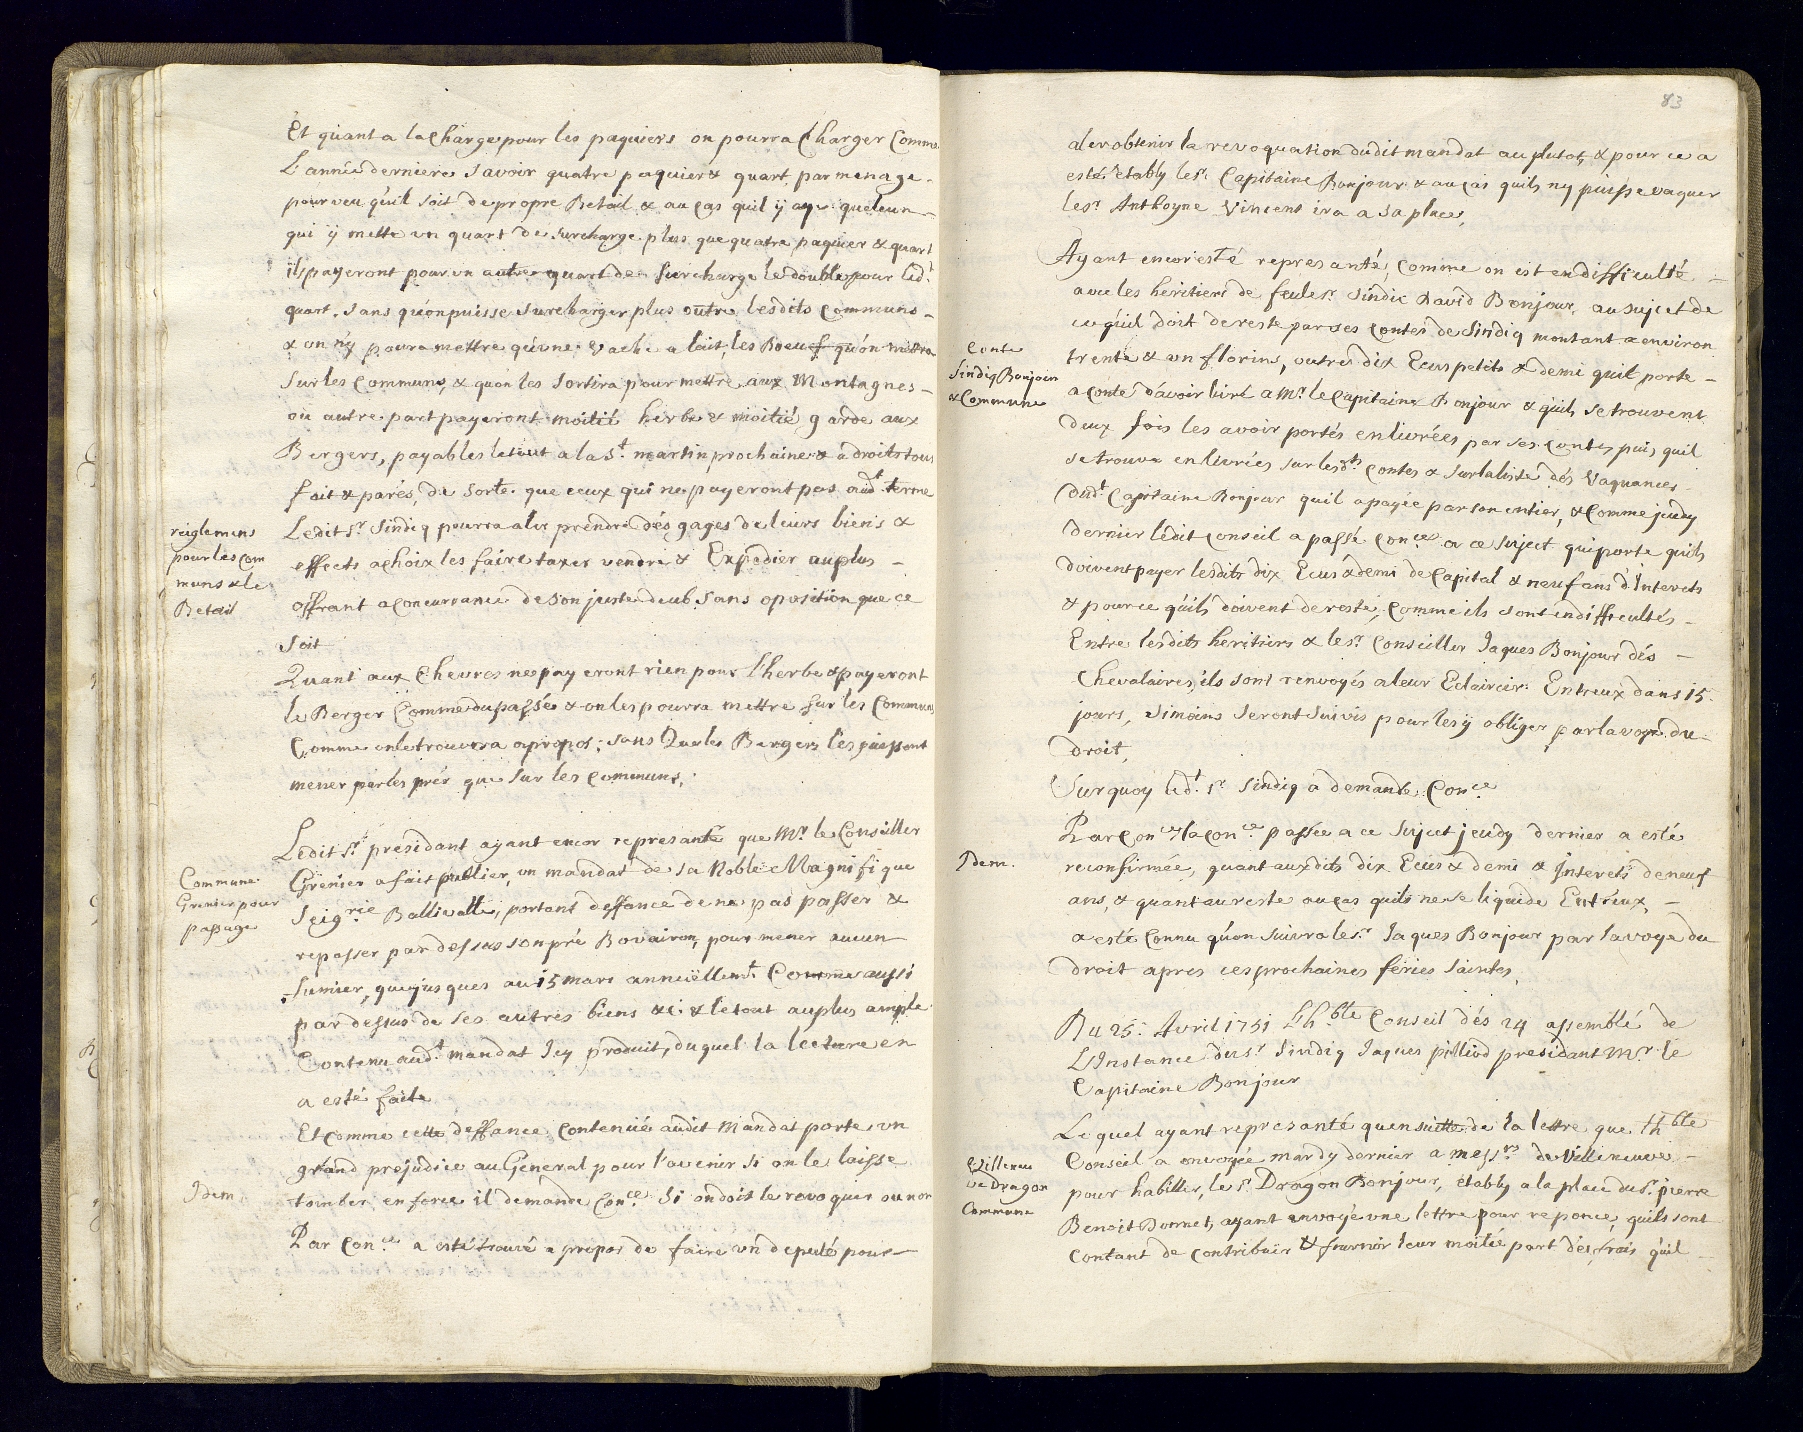 Et quant a la Charge pour les paquiers on pourra Charger Comme
L'année derniere Savoir quatre paquier & quart par menage
pourveu qu'il soit de propre Betail & au cas quil ÿ aye quelcun
qui ÿ mette un quart de surcharge plus que quatre paquier & quart
ils payeront pour un autre quart de Surcharge le double pour led.t
quart. Sans qu'on puisse Surcharger plus outre lesdits communs
& on n'y poura mettre qu'une Vache a lait, les Boeuf qu'on mettra
Sur les Communs, & quon les Sortira pour mettre aux Montagnes
ou autre part payeront moitié herbe & moitié garde aux
Bergers, payables le tout a la S.t martin prochaine & a droits tous
fait & parés, de Sorte que ceux qui ne payeront pas aud.t terme
reiglemens
pour les com
muns & le
Betail
Ledit S.r Sindiq pourra aler prendre dés gages de leurs biens &
effects a choix les faire taxer vendre & Expedier au plus
offrant a concurrance de son juste deub. Sans oposition que ce
soit
Quant aux Chevres ne payeront rien pour l'herbe & payeront
le Berger Comme du passé & on les pourra mettre Sur les Communs
Comme on le trouvera apropos; sans Que les Bergers les puissent
mener par les prés que Sur les communs.
Ledit S.r presidant ayant encor representé que M.r le Consiller
Commune
Grenier pour
passage
Grenier a fait publier, un mandat de Sa Noble Magnifique
Seig.rie Ballivalle, portant deffance de ne pas passer &
repasser par dessus son pré Bovairon, pour mener aucun
fumier, que jusques au 15 mars annuëllem.t Comme aussi
par dessus de ses autres biens &c. & le tout au plus ample
Contenu aud.t mandat Icy produit, duquel la lecture en
a esté faite
Et comme cette deffance contenüe audit Mandat porte un
grand prejudice au General pour l'avenir Si on le laisse
Idem
tomber en force il demande Con.ce Si on doit le revoquer ou non
Par Con.ce a esté trouvé a propos de faire un deputé pour
83
aler obtenir la revoquation dudit mandat au plutot, & pour ce a
esté etably le S.r Capitaine Bonjour & au cas quils ny puisse vaquer
le S.r Anthoyne Vincent ira a Sa place,
Ayant encor esté represanté, comme on est en difficulté
avec les heritiers de feu le S.r Sindic David Bonjour, au sujet de
ce qu'il doit de reste par ses contes de Sindiq montant a environ
Conte
Sindiq Bonjour
& Commune
trente & un florins, outre dix Ecus petits & demi quil porte
a conte d'avoir livré a M.r le Capitaine Bonjour & quils se trouvent
deux fois les avoir portés en livrées par ses contes puis quil
se trouve en livrées sur lesd.ts contes & sur la liste dés Vaquances
dud.t Capitaine Bonjour quil a payée par son entier, & comme jeudy
dernier ledit conseil a passé con.ce a ce Sujet qui porte quils
doivent payer lesdits dix Ecus & demi de Capital & neuf ans d'Interets
& pour ce qu'ils doivent de reste, comme ils sont en difficultés
Entre lesdits heritiers & le S.r Conseiller Jaques Bonjour dés
Chevalaires, ils sont renvoyés a leur Eclaircir Entreux dans 15
jours, simoins Seront Suivis pour les ÿ obliger par la voye du
droit,
Sur quoy led.t S.r Sindiq a demandé Con.ce
Par Con.ce la con.ce passée a ce Sujet jeudy dernier a esté
Idem.
reconfirmée, quant auxdits dix Ecus & demi & Interets de neuf
ans, & quant au reste au cas quils ne se liquide Entreux,
a esté Connu qu'on suivra le S.r Jaques Bonjour par la voye du
droit apres ces prochaines féries Saintes,
Du 25.e Avril 1751 Lh.ble Conseil dés 24 assemblé de
L'Instance du S.r Sindiq Jaques pilliod presidant M.r le
Capitaine Bonjour
Lequel ayant represanté quensuitte de la lettre que Lh.ble
Villeneu
ve Dragon
Commune
Conseil a envoyée mardy dernier a mess.rs de Villeneuve
pour habiller, le S.r Dragon Bonjour, etably a la place du S.r pierre
Benoit Bonnet, ayant envoyé une lettre pour reponce, quils sont
contant de contribuër & fournir leur moitié part dés frais quil